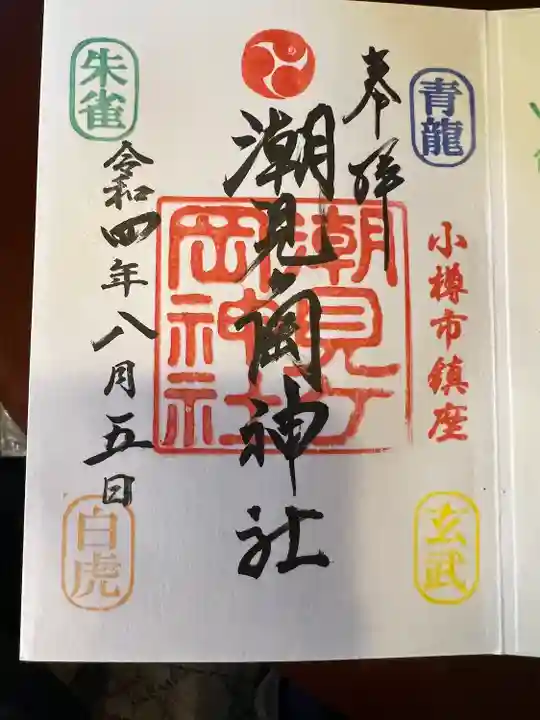 奉拝
青龍
小樽市鎮座
玄武
潮見ヶ岡神社
潮見ケ
岡神社
朱雀
令和四年八月五日
白虎